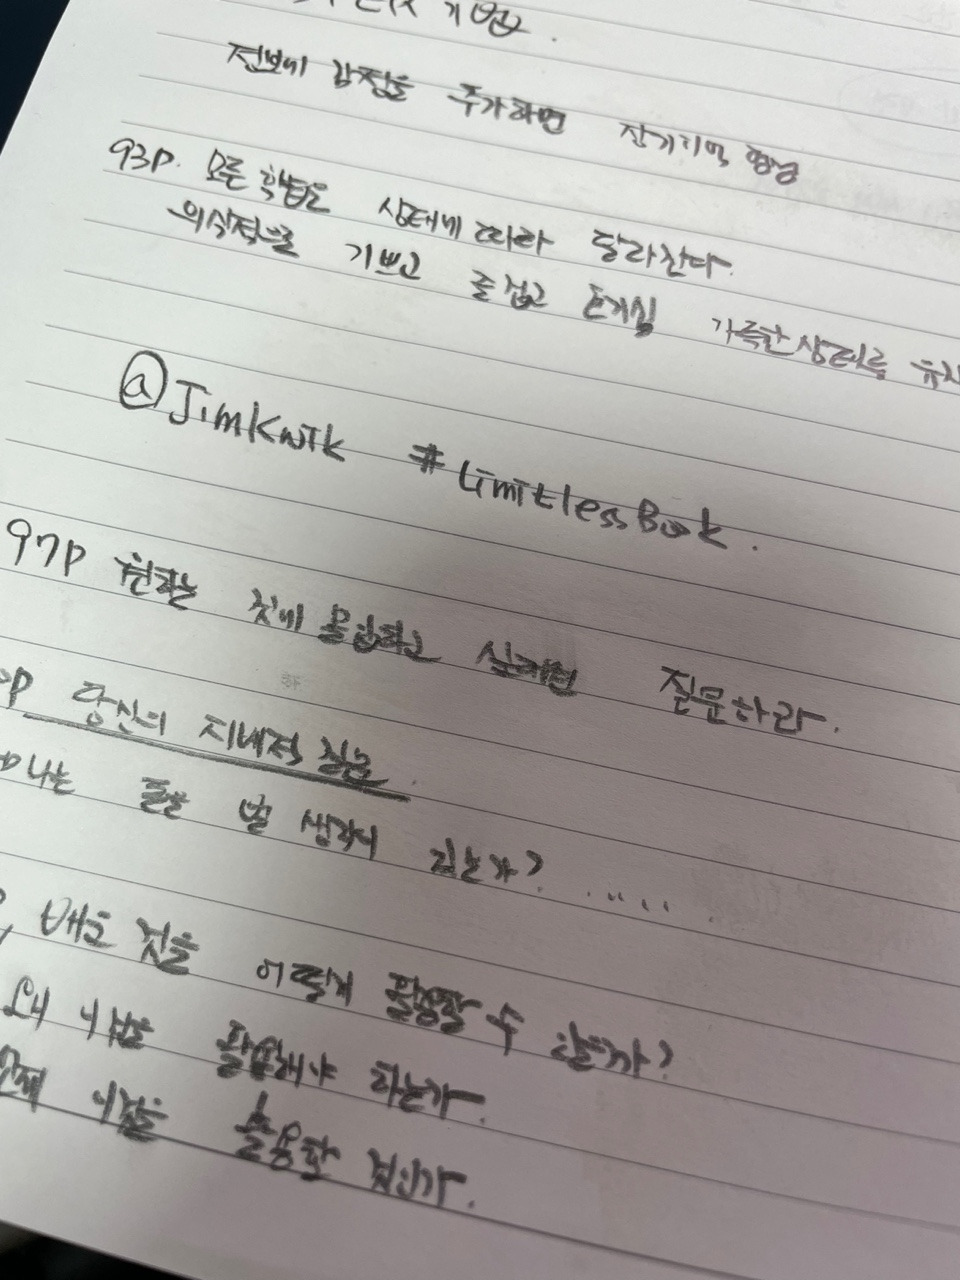 기법.
정보에 감정을 추가하면 장기기억 형성
93p. 모든 학습은 상태에 따라 달라진다.
의식적으로 기쁘고 즐겁고 호기심 가득한 상태를 유지
@JimKwik #LimitlessBook.
97p 원하는 것에 몰입하고 싶다면 질문하라.
p 당신의 지배적 질문.
나는 돈을 벌 생각이 있는가? .....
배운 것을 어떻게 활용할 수 있을까?
왜 이것을 활용해야 하는가.
언제 이것을 활용할 것인가.